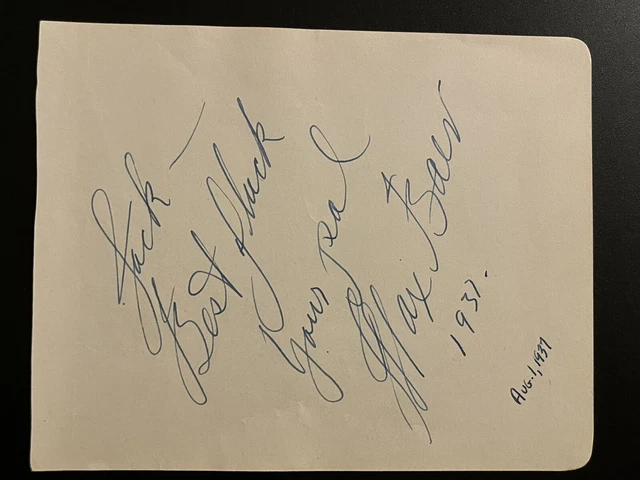 Jack -
Best of luck
Your pal
Max Baer
1937.
Aug. 1, 1937